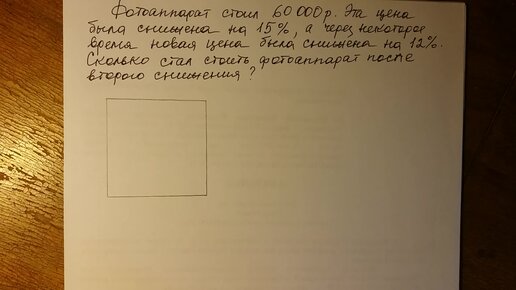 Фотоаппарат стоил 60 000 р. Эта цена
была снижена на 15%, а через некоторое
время новая цена была снижена на 12%.
Сколько стал стоить фотоаппарат после
второго снижения?